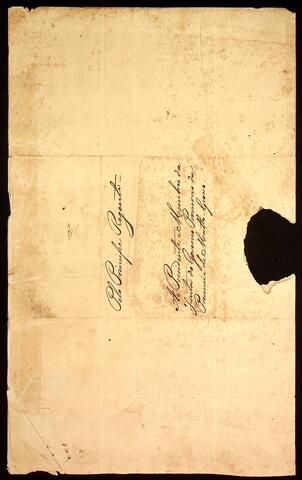 Pelo Principe Regente_
Ao Presidente e Membros da
Junta do Governo Provisorio da
Provincia de Matto Grosso